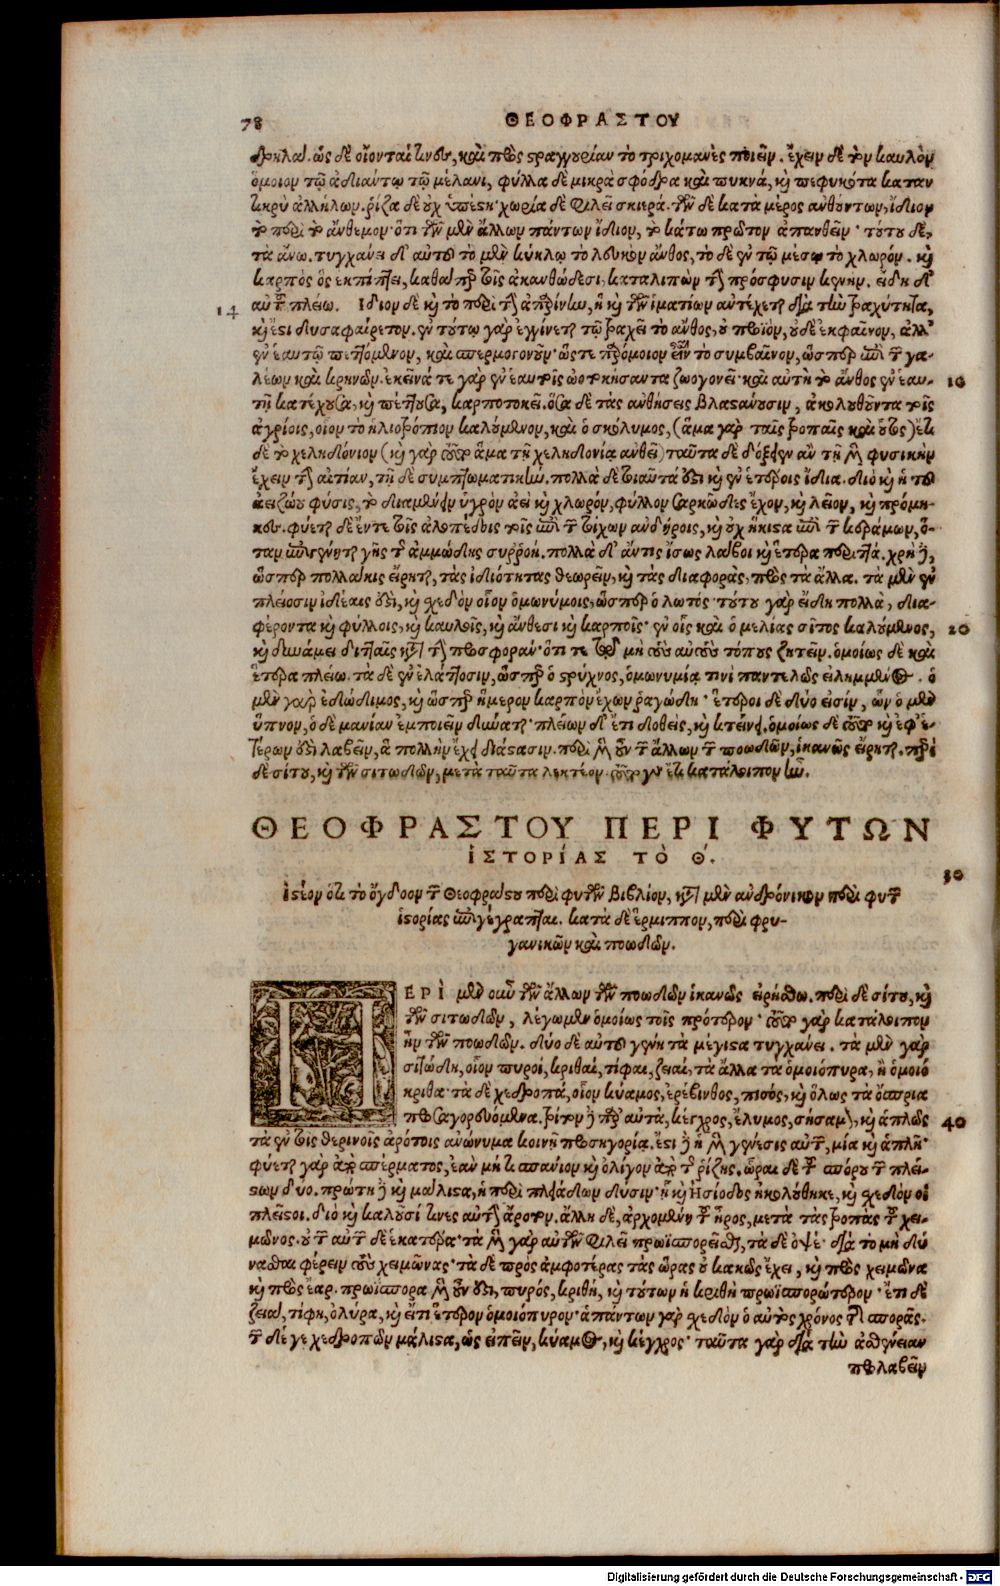 78 ΘΕΟΦΡΑΣΤΟΥ
δῆλα. ὡς δὲ οἴονταί τινες, καὶ πρὸς στραγγουρίαν τὸ τριχομανὲς ποιεῖν. ἔχειν δὲ τὸν καυλὸν
ὅμοιον τῷ ἀδιάντῳ τῷ μέλανι, φύλλα δὲ μικρὰ σφόδρα καὶ πυκνά, καὶ πεφυκότα καταν
τικρὺ ἀλλήλων. ῥίζα δὲ οὐχ ὕπεστι· χωρία δὲ φιλεῖ σκιερά. τῶν δὲ κατὰ μέρος ἀνθούντων, ἴδιον
τὸ περὶ τὸ ἄνθεμον· ὅτι τῶν μὲν ἄλλων πάντων ἴδιον, τὸ κάτω πρῶτον ἀπανθεῖν· τούτου δὲ,
τὰ ἄνω. τυγχάνει δ' αὐτοῦ τὸ μὲν κύκλῳ τὸ λευκὸν ἄνθος, τὸ δὲ ἐν τῷ μέσῳ τὸ χλωρόν. καὶ
καρπὸς ὃς ἐκπίπτει, καθάπερ τοῖς ἀκανθώδεσι, καταλιπὼν τὴν πρόσφυσιν κενήν. εἴδη δ'
14 αὐτοῦ πλείω. Ἴδιον δὲ καὶ τὸ περὶ τὴν ἀπαρίνην, ἣ καὶ τῶν ἱματίων ἀντέχεται διὰ τὴν τραχύτητα,
καὶ ἔστι δυσαφαίρετον. ἐν τούτῳ γὰρ ἐγγίνεται τῷ τραχεῖ τὸ ἄνθος, οὐ προϊὸν, οὐδὲ ἐκφαῖνον, ἀλλ'
ἐν ἑαυτῷ πεττόμενον, καὶ σπερμογονοῦν· ὥστε παρόμοιον εἶναι τὸ συμβαῖνον, ὥσπερ ἐπὶ τῶν γα-
λέων καὶ ῥινῶν. ἐκεῖνά τε γὰρ ἐν ἑαυτοῖς ὠοτοκήσαντα ζωογονεῖ· καὶ αὐτὴ τὸ ἄνθος ἐν ἑαυ- 10
τῇ κατέχουσα, καὶ πέττουσα, καρποτοκεῖ. ὅσα δὲ τὰς ἀνθήσεις βλαστάνουσιν, ἀκολουθοῦντα τοῖς
ἀγρίοις, οἷον τὸ ἡλιοτρόπιον καλούμενον, καὶ ὁ σκόλυμος, (ἅμα γὰρ ταῖς τροπαῖς καὶ οὗτος) ἔτι
δὲ τὸ χελιδόνιον (καὶ γὰρ τοῦτο ἅμα τῇ χελιδονίᾳ ἀνθεῖ) ταῦτα δὲ δόξειεν ἂν τῇ μὲν φυσικὴν
ἔχειν τὴν αἰτίαν, τῇ δὲ συμπτωματικήν. πολλὰ δὲ τοιαῦτά ἐστι καὶ ἐν ἑτέροις ἴδια. διὸ καὶ ἡ τοῦ
ἀειζώου φύσις, τὸ διαμένειν ὑγρὸν ἀεὶ καὶ χλωρόν, φύλλον σαρκῶδες ἔχον, καὶ λεῖον, καὶ πρόμη-
κες. φύεται δὲ ἔν τε τοῖς ἁλοπέδοις τοῖς ἐπὶ τῶν τοίχων ἀνδήροις, καὶ οὐχ ἥκιστα ἐπὶ τῶν κεράμων, ὅ-
ταν ἐπιγένηται γῆς τὶς ἀμμώδης συῤῥοή. πολλὰ δ' ἄν τις ἴσως λάβοι καὶ ἕτερα περιττά. χρὴ δὲ,
ὥσπερ πολλάκις εἴρηται, τὰς ἰδιότητας θεωρεῖν, καὶ τὰς διαφορὰς, πρὸς τὰ ἄλλα. τὰ μὲν ἐν
πλείοσιν ἰδέαις ἐστὶ, καὶ σχεδὸν οἷον ὁμωνύμοις, ὥσπερ ὁ λωτός· τούτου γὰρ εἴδη πολλὰ, δια-
φέροντα καὶ φύλλοις, καὶ καυλοῖς, καὶ ἄνθεσι καὶ καρποῖς· ἐν οἷς καὶ ὁ μελίας σῖτος καλούμενος, 20
καὶ δυνάμει διταῖς κατὰ τὴν προσφοράν· ὅτι τε τῷ μὴ τοὺς αὐτοὺς τόπους ζητεῖν. ὁμοίως δὲ καὶ
ἕτερα πλείω. τὰ δὲ ἐν ἐλάττοσιν, ὥσπερ ὁ στρύχνος, ὁμωνυμίᾳ τινὶ παντελῶς εἰλημμένος. ὁ
μὲν γὰρ ἐδώδιμος, καὶ ὥσπερ ἥμερον καρπὸν ἔχων ῥαγώδη· ἕτεροι δὲ δύο εἰσίν, ὧν ὁ μὲν
ὕπνον, ὁ δὲ μανίαν ἐμποιεῖν δύναται· πλέων δ' ἔτι δοθεὶς, καὶ κτείνει. ὁμοίως δὲ τοῦτο καὶ ἐφ' ἑ-
τέρων ἐστὶ λαβεῖν, ἃ πολλὴν ἔχει διάστασιν. περὶ μὲν οὖν τῶν ἄλλων τῶν ποωδῶν, ἱκανῶς εἴρηται. περὶ
δὲ σίτου, καὶ τῶν σιτωδῶν, μετὰ ταῦτα λεκτέον. τοῦτο γὰρ ἔτι κατάλοιπον ἦν.
ΘΕΟΦΡΑΣΤΟΥ ΠΕΡΙ ΦΥΤΩΝ
ἹΣΤΟΡΊΑΣ ΤῸ Θ'.
30
Ἰστέον ὅτι τὸ ὄγδοον τῶν Θεοφράστου περὶ φυτῶν βιβλίον, κατὰ μὲν ἀνδρόνικον περὶ φυτῶν
ἱστορίας ἐπιγέγραπται. κατὰ δὲ ἕρμιππον, περὶ φρυ-
γανικῶν καὶ ποωδῶν.
ΠΕΡῚ μὲν οὖν τῶν ἄλλων τῶν ποωδῶν ἱκανῶς εἰρήσθω. περὶ δὲ σίτου, καὶ
τῶν σιτωδῶν, λέγωμεν ὁμοίως τοῖς πρότερον· τοῦτο γὰρ κατάλοιπον
ἦν τῶν ποωδῶν. δύο δὲ αὐτοῦ γένη τὰ μέγιστα τυγχάνει. τὰ μὲν γὰρ
σιτώδη, οἷον πυροί, κριθαί, τίφαι, ζειαί, τὰ ἄλλα τὰ ὁμοιόπυρα, ἢ ὁμοιό
κριθα· τὰ δὲ χεδροπά, οἷον κύαμος, ἐρέβινθος, πισός, καὶ ὅλως τὰ ὄσπρια
προσαγορευόμενα. τρίτον δὲ παρ' αὐτὰ, κέγχρος, ἔλυμος, σήσαμον, καὶ ἁπλῶς 40
τὰ ἐν τοῖς θερινοῖς ἀρότοις ἀνώνυμα κοινῇ προσηγορίᾳ. ἔστι δὲ ἡ μὲν γένεσις αὐτῶν, μία καὶ ἁπλῆ·
φύεται γὰρ ἀπὸ σπέρματος, ἐὰν μή τι σπάνιον καὶ ὀλίγον ἀπὸ τῆς ῥίζης. ὧραι δὲ τοῦ σπόρου τῶν πλεί-
στων δύο. πρώτη δὲ καὶ μάλιστα, ἡ περὶ πλειάδων δύσιν· ᾗ καὶ Ἡσίοδος ἠκολούθηκε, καὶ σχεδὸν οἱ
πλεῖστοι. διὸ καὶ καλοῦσί τινες αὐτὴν ἄροτον. ἄλλη δὲ, ἀρχομένου τοῦ ἦρος, μετὰ τὰς τροπὰς τοῦ χει-
μῶνος. οὐ τῶν αὐτῶν δὲ ἑκατέρα· τὰ μὲν γὰρ αὐτῶν φιλεῖ πρωϊσπορεῖσθαι, τὰ δὲ ὀψέ· διὰ τὸ μὴ δύ
νασθαι φέρειν τοὺς χειμῶνας· τὰ δὲ πρὸς ἀμφοτέρας τὰς ὥρας οὐ κακῶς ἔχει, καὶ πρὸς χειμῶνα
καὶ πρὸς ἔαρ. πρωΐσπορα μὲν οὖν ἐστι, πυρός, κριθή, καὶ τούτων ἡ κριθὴ πρωϊσπορώτερον· ἔτι δὲ
ζειαὶ, τίφη, ὄλυρα, καὶ εἴ τι ἕτερον ὁμοιόπυρον· ἁπάντων γὰρ σχεδὸν ὁ αὐτὸς χρόνος τῆς σπορᾶς.
τῶν δέ γε χεδροπῶν μάλιστα, ὡς εἰπεῖν, κύαμος, καὶ κέγχρος· ταῦτα γὰρ διὰ τὴν ἀσθένειαν
προλαβεῖν
Digitalisierung gefördert durch die Deutsche Forschungsgemeinschaft - DFG